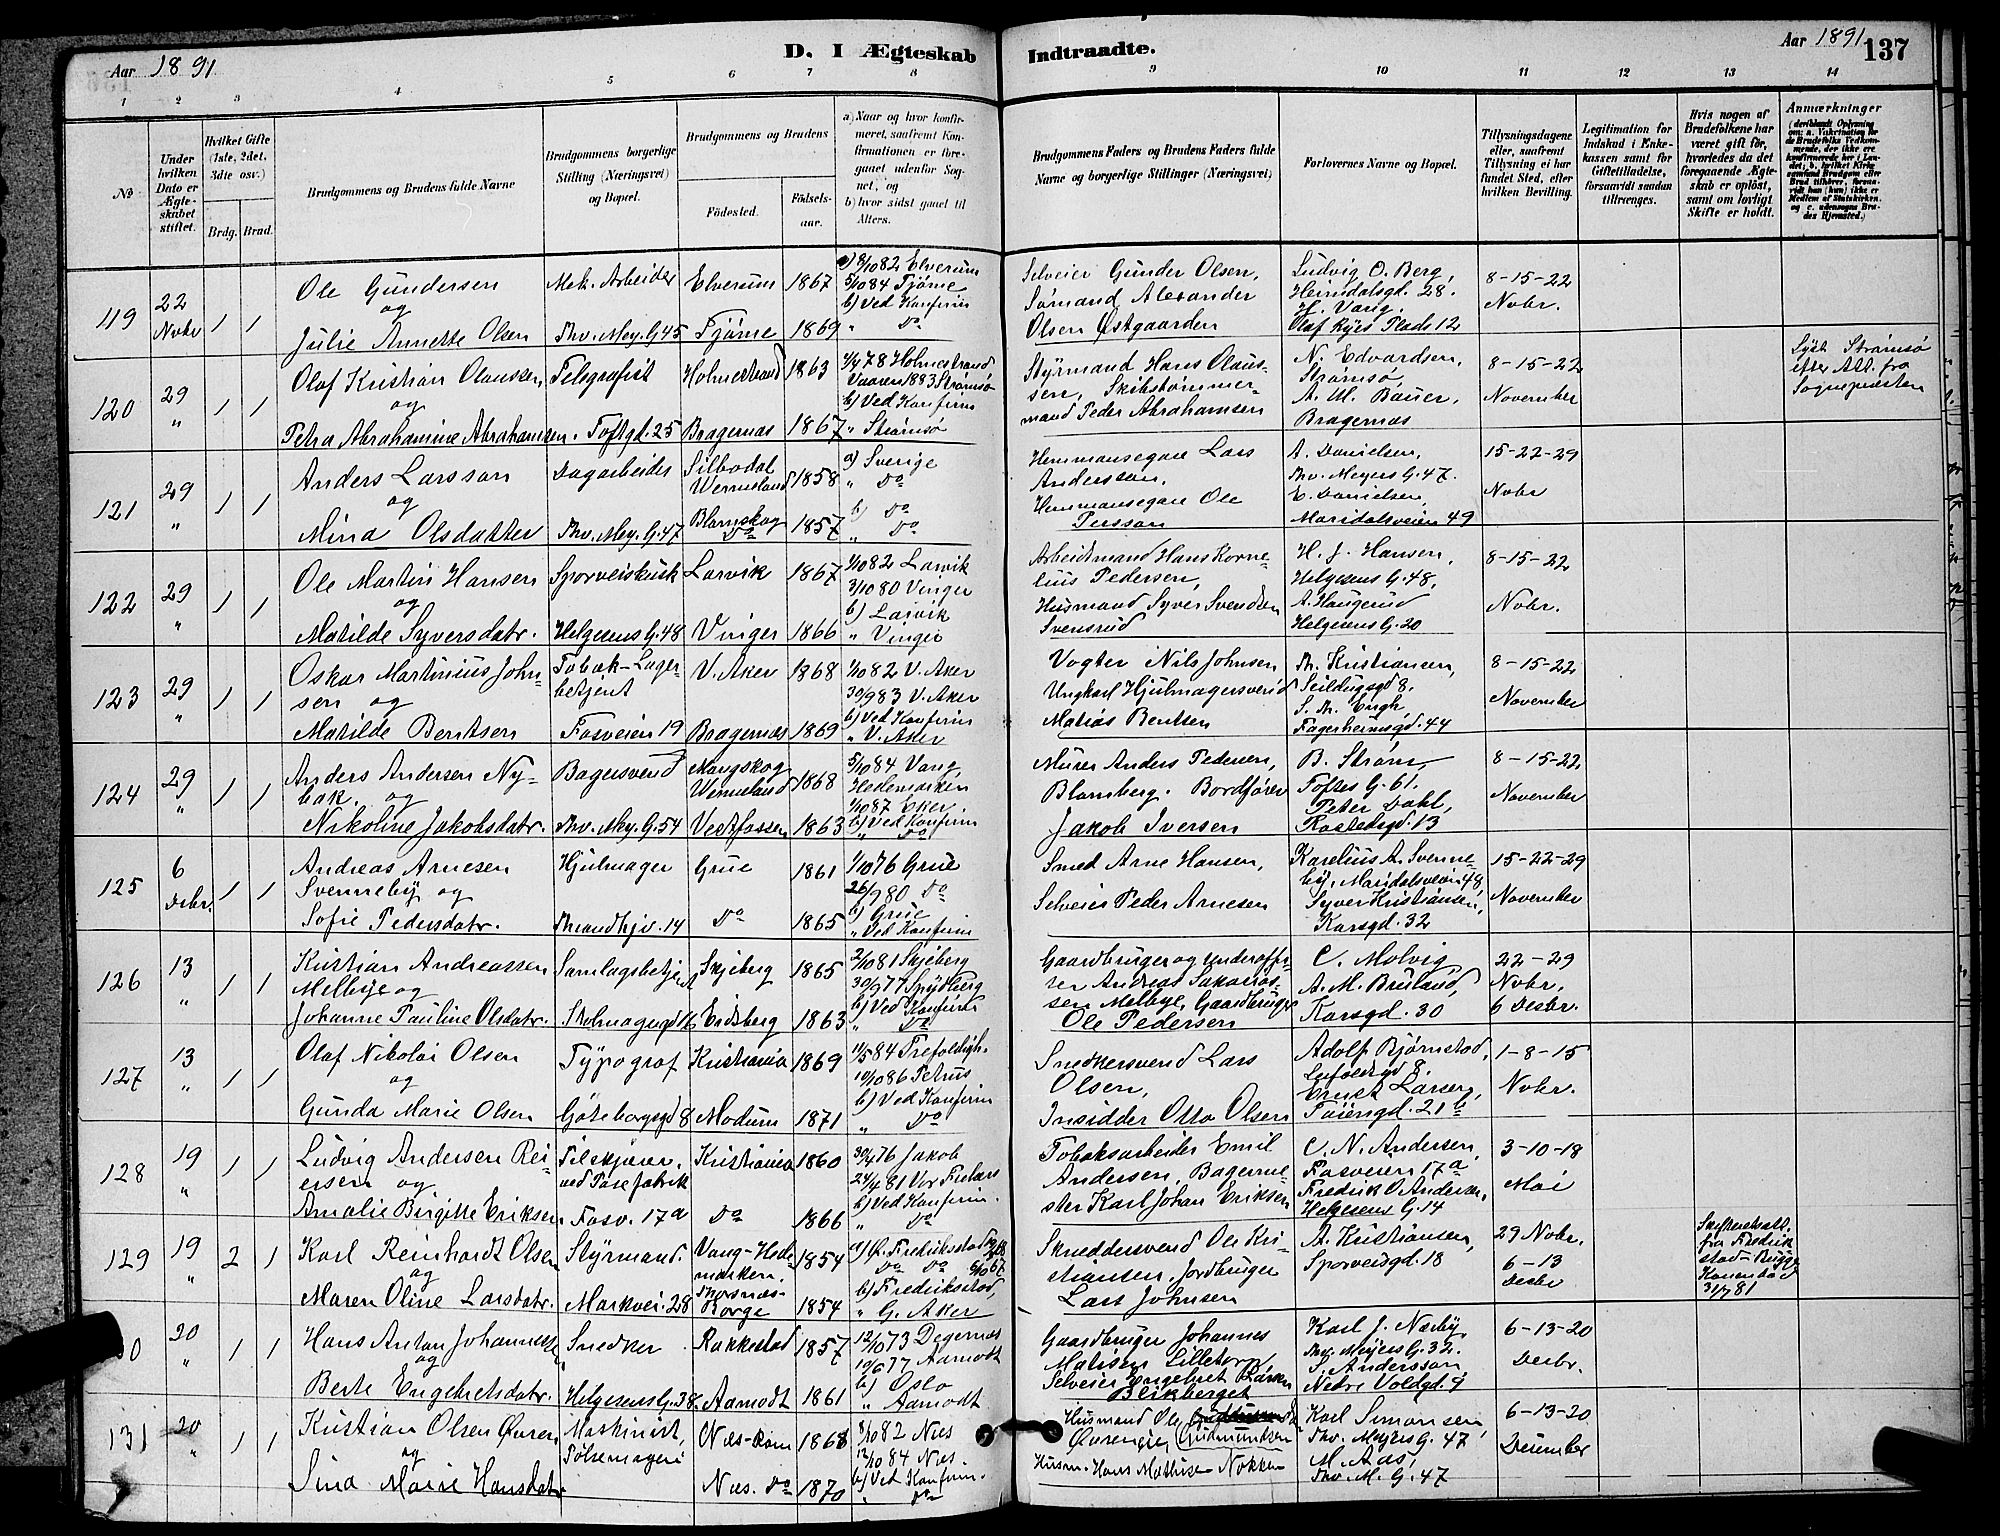 Aar 1891
D. I Ægteskab
Indtraadte.
Aar 1891
137
1 2 3 4 5 6 7 8 9 10 11 12 13 14
No
Under hvilken Dato er Ægteskabet stiftet.
Hvilket Gifte (1ste, 2det, 3dte osv.)
Brdg. Brud.
Brudgommens og Brudens fulde Navne
Brudgommens borgerlige Stilling (Næringsvei) og Bopæl.
Brudgommens og Brudens
Fødested.
Fødselsaar.
a) Naar og hvor konfirmeret, saafremt Konfirmationen er foregaaet udenfor Sognet, og
b) hvor sidst gaaet til Alters.
Brudgommens Faders og Brudens Faders fulde Navne og borgerlige Stillinger (Næringsvei)
Forlovernes Navne og Bopæl.
Tillysningsdagene eller, saafremt Tillysning ei har fundet Sted, efter hvilken Bevilling.
Legitimation for Indskud i Enkekassen samt for Giftetilladelse, forsaavidt saadan tiltrænges.
Hvis nogen af Brudefolkene har været gift før, hvorledes da det foregaaende Ægteskab er opløst, samt om lovligt Skifte er holdt.
Anmærkninger
119 22 Novbr 1 1
Ole Gundersen og Julie Annette Olsen
Mek. Arbeider Thv. Mey. G. 45
Elverum 1867 Tjøme 1869
a) 8/10 82 Elverum 5/10 84 Tjøme b) Ved Konfirm " Do
Selveier Gunder Olsen, Sømand Alexander Olsen Østgaarden
Ludvig O. Berg, Heimdalsgd. 28. H. Vang, Olaf Ryes Plads 12
8-15-22 Novbr.
120 29 " 1 1
Olaf Kristian Olaussen og Petra Abrahamine Abrahamsen
Telegrafist Toftgd. 25
Holmestrand 1863 Bragernæs 1867
Holmestrand Vaaren 1883 Strømsø b) Ved Konfirm " Strømsø
Styrmand Hans Olaussen, Skibstømmermand Peder Abrahamsen
N. Edvardsen, Strømsø A. M. Bauer, Bragernæs
8-15-22 November
Lyst Strømsø efter Att. fra Sognepræsten
121 29 " 1 1
Anders Larsson og Mina Olsdatter
Dagarbeider Thv. Mey. G. 47
Silbodal Wermeland 1858 Blomskog Do 1857
a) Sverige " Do b) Do " Do
Hemmansegare Lars Andersson, Hemmansegare Ole Persson
A. Danielsen, Thv. Meyers G. 47. E. Danielsen, Maridalsveien 49
15-22-29 Novbr
122 29 " 1 1
Ole Martin Hansen og Matilde Syversdatr.
Sporveiskusk Helgesens G. 48
Larvik 1867 Vinger 1866
1/10 82 Larvik 3/10 80 Vinger b) Larvik " Vinger
Arbeidsmand Hans Kornelius Pedersen, Husmand Syver Svendsen Svensrud
H. J. Hansen, Helgesens G. 48, A. Haugerud Helgesens G. 20
8-15-22 Novbr.
123 29 " 1 1
Oskar Martinius Johnsen og Matilde Berntsen
Tobak-Lagerbetjent Fosveien 19
V. Aker 1868 Bragernæs 1869
1/10 82 V. Aker 30/9 83 V. Aker b) Ved Konfirm " V. Aker
Vogter Nils Johnsen Ungkarl Hjulmagersvend Matias Bentsen
Th. Kristiansen, Seildugsgd 8, S. Th. Engh Fagerheimsgd. 44
8-15-22 November
124 29 " 1 1
Anders Andersen Nybak og Nikoline Jakobsdatr.
Bagersvend Thv. Mey. G. 54
Mangskog Wermeland 1868 Vestfossen 1863
5/10 84 Vang Hedemarken 1/10 87 Eker. b) Ved Konfirm " Do
Murer Anders Pedersen, Blomberg. Bordfører Jakob Iversen
B. Strøm, Toftes G. 61. Peter Dahl, Rostedsgd. 13
8-15-22 November
125 6 Decbr. 1 1
Andreas Arnesen Svenneby og Sofie Pedersdatr.
Hjulmager Thrandhjv. 14
Grue 1861 Do 1865
1/10 76 Grue 26/9 80 Do b) Grue " Ved Konfirm
Smed Arne Hansen, Selveier Peder Arnesen
Karelius A. Svenneby, Maridalsveien 48 Syver Kristiansen, Korsgd. 32
15-22-29 November
126 13 " 1 1
Kristian Andreassen Melbye og Johanne Pauline Olsdatr.
Samlagsbetjent
Skjeberg 1865 Eidsberg 1863
2/10 81 Skjeberg 30/9 77 Spydberg b) Ved Konfirm " Do
Gaardbruger og Underofficer Andreas Melbye, Gaardbruger Ole Pedersen
C. Molvig A. M. Bruland, Korsgd. 30
22-29 Novbr. 6 Decbr.
127 13 " 1 1
Olaf Nikolai Olsen og Gunda Marie Olsen
Typograf Göteborgsgd 8
Kristiania 1869 Modum 1871
11/5 84 Trefoldigh. 10/10 86 Petrus b) Ved Konfirm " Do
Snedkersvend Lars Olsen, Insidder Otto Olsen
Adolf Bjørnstad, 8, Ernst Larsen, Tøiengd. 21 b
1-8-15 Novbr.
128 19 " 1 1
Ludvig Andersen Reiersen og Amalie Birgitte Eriksen
Tilskjærer ved Posefabrik Fosv. 17a
Kristiania 1860 Do 1866
30/4 76 Jakob 24/4 81 Vor Frelsers b) Ved Konfirm. " Do
Tobaksarbeider Emil Andersen, Bagermester Karl Johan Eriksen
C. N. Andersen, Fosveien 17a Fredrik O. Andersen, Helgesens G. 14
3-10-18 Mai
129 19 " 2 1
Karl Reinhardt Olsen og Maren Oline Larsdatr.
Styrmand. Markvei. 28
Vang-Hedemarken. 1854 Thorsnæs-Borge 1854
a) Ø. Fredriksstad Do Do b) Fredriksstad, " G. Aker
Skræddersvend Ole Kristiansen, Jordbruger Lars Johnsen
A. Kristiansen, Sporveisgd. 18
29 Novbr. 6-13 Decbr
Skifteretsatt. fra Fredrikstad-Brigge Konen død 31/7 81
130 20 " 1 1
Hans Anton Johannessen og Berte Engebretsdatr.
Snedker Helgesens G. 38
Rakkestad 1857 Aamodt 1861
12/10 73 Degernæs 10/6 77 Aamodt b) Oslo " Aamodt
Gaardbruger Johannes Matisen Lilletorp Selveier Engebret Larsen Blikberget
Karl J. Næsby, Thv. Meyers G. 32. S. Andersson Nedre Voldgd. 9
6-13-20 Decbr.
131 20 " 1 1
Kristian Olsen Øvren og Sina Marie Hansdatr
Maskinist, Pølsemageri
Næs-Rom 1868 Næs. Do 1870
8/10 82 Næs 12/10 84 Næs. b) Ved Konfirm. " Do
Husmand Ole Gudmundsen Husm. Hans Mathisen Nokken
Karl Simonsen, Thv. Meyers G. 47 M. Aas, Thv. M. G. 47
6-13-20 December